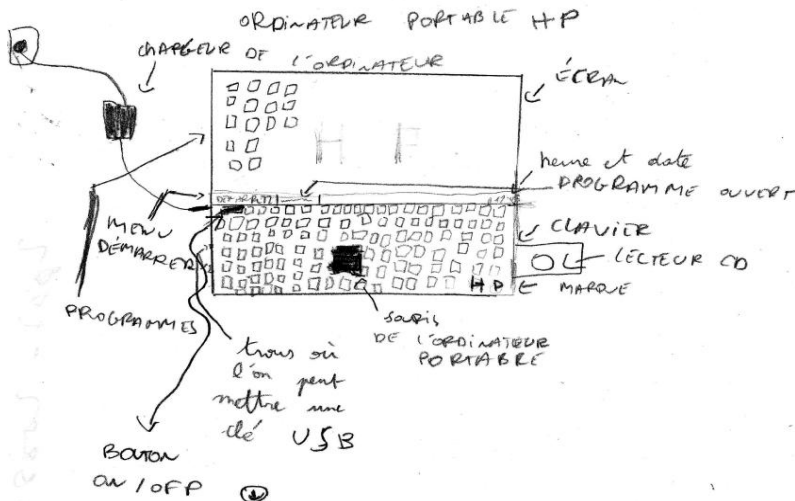 ORDINATEUR PORTABLE HP
CHARGEUR DE L'ORDINATEUR
ÉCRAN
H P
heure et date
PROGRAMME OUVERT
DÉMARRER
MENU
DÉMARRER
CLAVIER
LECTEUR CD
HP
MARQUE
PROGRAMMES
souris
DE L'ORDINATEUR
PORTABRE
trous où
l'on peut
mettre une
clé USB
BOUTON
ON/OFF